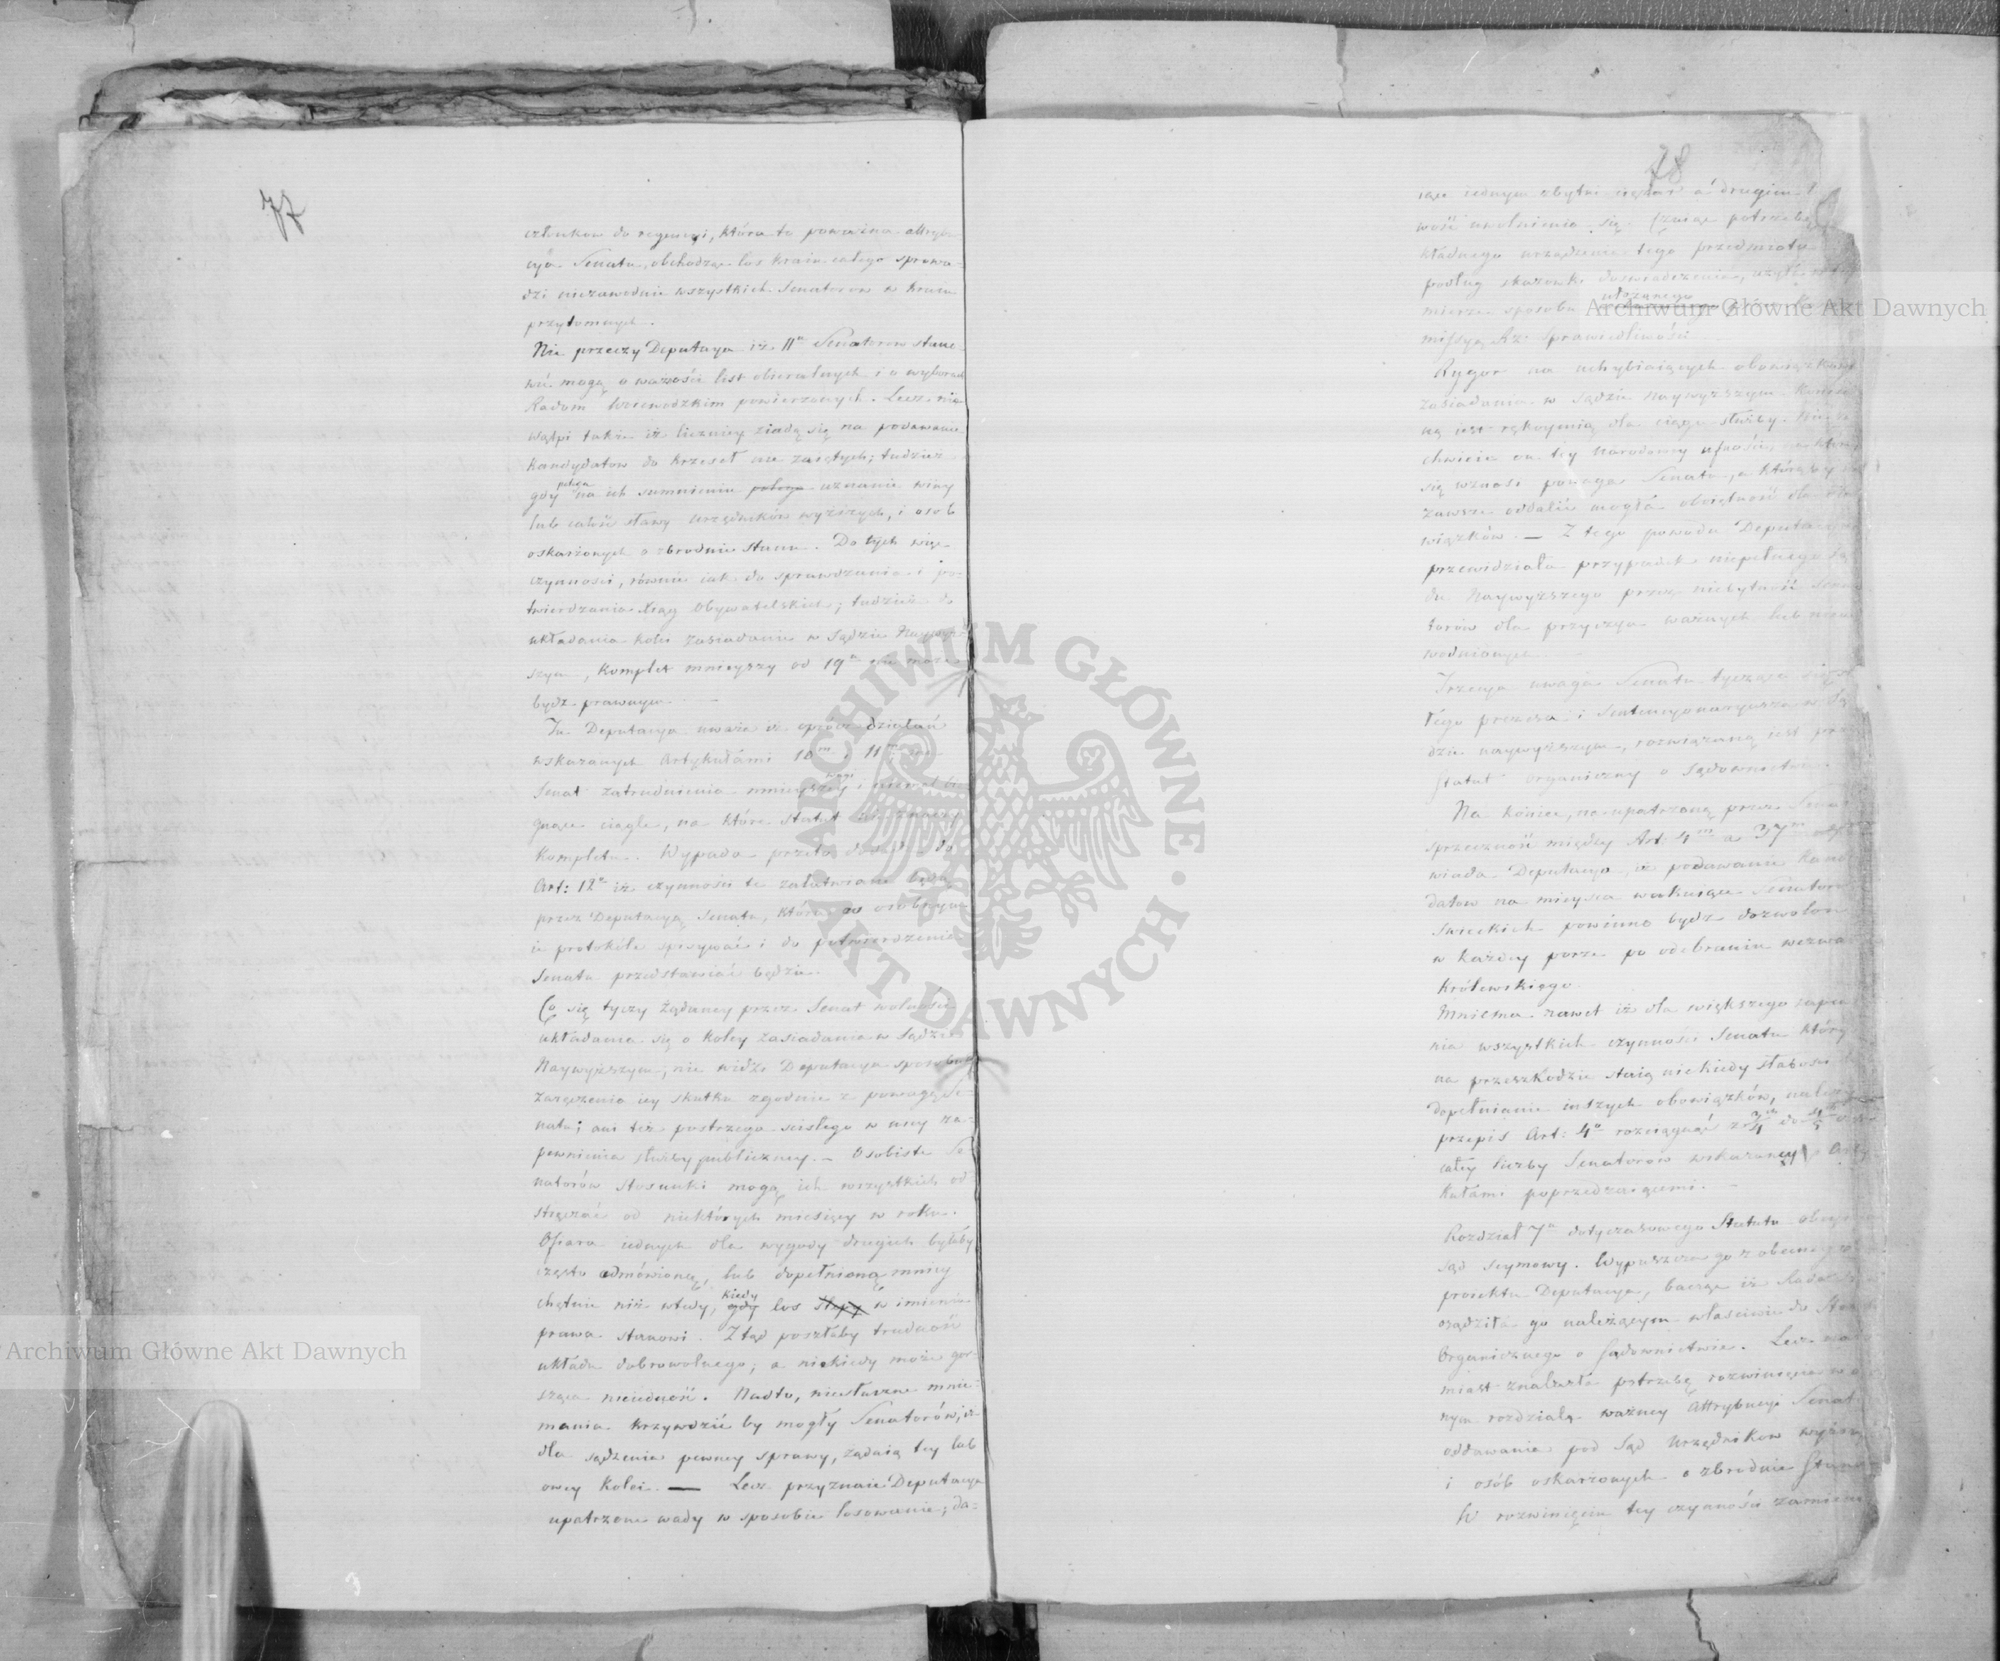 77
członkow do regencyi, która to poważna attrybu-
cya Senatu, obchodząc los kraiu całego sprowa-
dzi niezawodnie wszystkich Senatorow w kraiu
przytomnych.
Nie przeczy Deputacya iż 11u Senatorow stano-
wić mogą o ważności list obieralnych i o wyborach
Radom Woiewodzkim powierzonych. Lecz nie
wątpi także iż liczniey ziadą się na podawanie
kandydatow do krzeseł nie zaiętych; tudzież
gdy polega na ich sumnieniu polega uznanie winy
lub całość sławy urzędników wyższych, i osob
oskarżonych o zbrodnie stanu. Do tych więc
czynności, równie iak do sprawdzania i po-
twierdzania Xiąg Obywatelskich; tudzież do
układania kolei zasiadania w Sądzie Naywyż-
szym, komplet mnieyszy od 19u nie może
bydź prawnym.
Tu Deputacya uważa iż oprócz działań
wskazanych Artykułami 10m i 11m
Senat zatrudnienia mnieyszey wagi i
ciągle, na które Statut
kompletu. Wypada przeto dodać do
Art: 12o iż czynności te załatwiane będą
przez Deputacyą Senatu, która w osobnym
ie protokóle spisywać i do potwierdzenia
Senatu przedstawiać będzie.
Co się tyczy żądaney przez Senat wolności
układania się o koley zasiadania w Sądzie
Naywyższym, nie widzi Deputacya sposobu
zaręczenia iey skutku zgodnie z powagą Se-
natu; ani też postrzega ścisłego w niey za-
pewnienia służby publiczney. — Osobiste Se-
natorów stosunki mogą ich wszystkich od-
stręczać od niektórych miesięcy w roku.
Ofiara iednych dla wygody drugich byłaby
często odmówioną, lub dopełnioną mniey
chętnie niż wtedy, kiedy gdy los ślepy w imieniu
prawa stanowi. Ztąd poszłaby trudność
układu dobrowolnego, a niekiedy może gor-
sząca nieiedność. Nadto, niesłuszne mnie-
mania krzywdzić by mogły Senatorów, iż
dla sądzenia pewney sprawy, żądaią tey lub
owey kolei. — Lecz przyznaie Deputacya
upatrzone wady w sposobie losowania; da-
78
iące iednym zbytni ciężar a drugim
wość uwolnienia się. Czuiąc potrzebę
kładnego urządzenia tego przedmiotu
podług skazówki doświadczenia, użyła w tey
mierze sposobu ułożonego przez Kom-
missyą Rz: Sprawiedliwości
Rygor na uchybiaiących obowiązkowi
zasiadania w Sądzie Naywyższym
ną iest rękoymią dla ciągu służby. Nie
chwieie on tey Narodowey ufności, na którey
się wznosi powaga Senatu, a którąby
zawsze oddalić mogła obojętność dla obo-
wiązków. — Z tego powodu Deputacya
przewidziała przypadek niepełnego Są-
du Naywyższego przez niebytność Sena-
torów dla przyczyn ważnych lub nieu-
wodnionych
Trzecia uwaga Senatu tycząca się
łego prezesa i Sentencyonaryusza w Są-
dzie naywyższym, rozwiązaną iest przez
Statut Organiczny o Sądownictwie.
Na koniec, na upatrzoną przez Senat
sprzeczność między Art: 4m a 37m odpo-
wiada Deputacya, iż podawanie kandy-
datow na mieysca wakuiące Senatorow
Swieckich powinno bydź dozwolone
w każdey porze po odebraniu wezwania
Królewskiego.
Mniema nawet iż dla większego zapew-
nia wszystkich czynności Senatu którym
na przeszkodzie staią niekiedy słabości
dopełnianie inszych obowiązków, należy
przepis Art: 4o rozciągnąć z 3/4 do
całey liczby Senatorow wskazaney Arty-
kułami poprzedzaiącemi. —
Rozdział 7u dotyczasowego Statutu obeymuie
sąd Seymowy. Wypuszcza go z obecnego
proiektu Deputacya, bacząc iż Rada
osądziła go należącym właściwie do Statutu
Organicznego o Sądownictwie. Lecz nato-
miast znalazła potrzebę rozwinięcia w
nym rozdziale ważney Attrybucyi Senatu
oddawania pod Sąd Urzędnikow wyższych
i osób oskarżonych o zbrodnie Stanu
W rozwinięciu tey czynności zamieni
Archiwum Główne Akt Dawnych
Archiwum Główne Akt Dawnych
ARCHIWUM GŁÓWNE AKT DAWNYCH